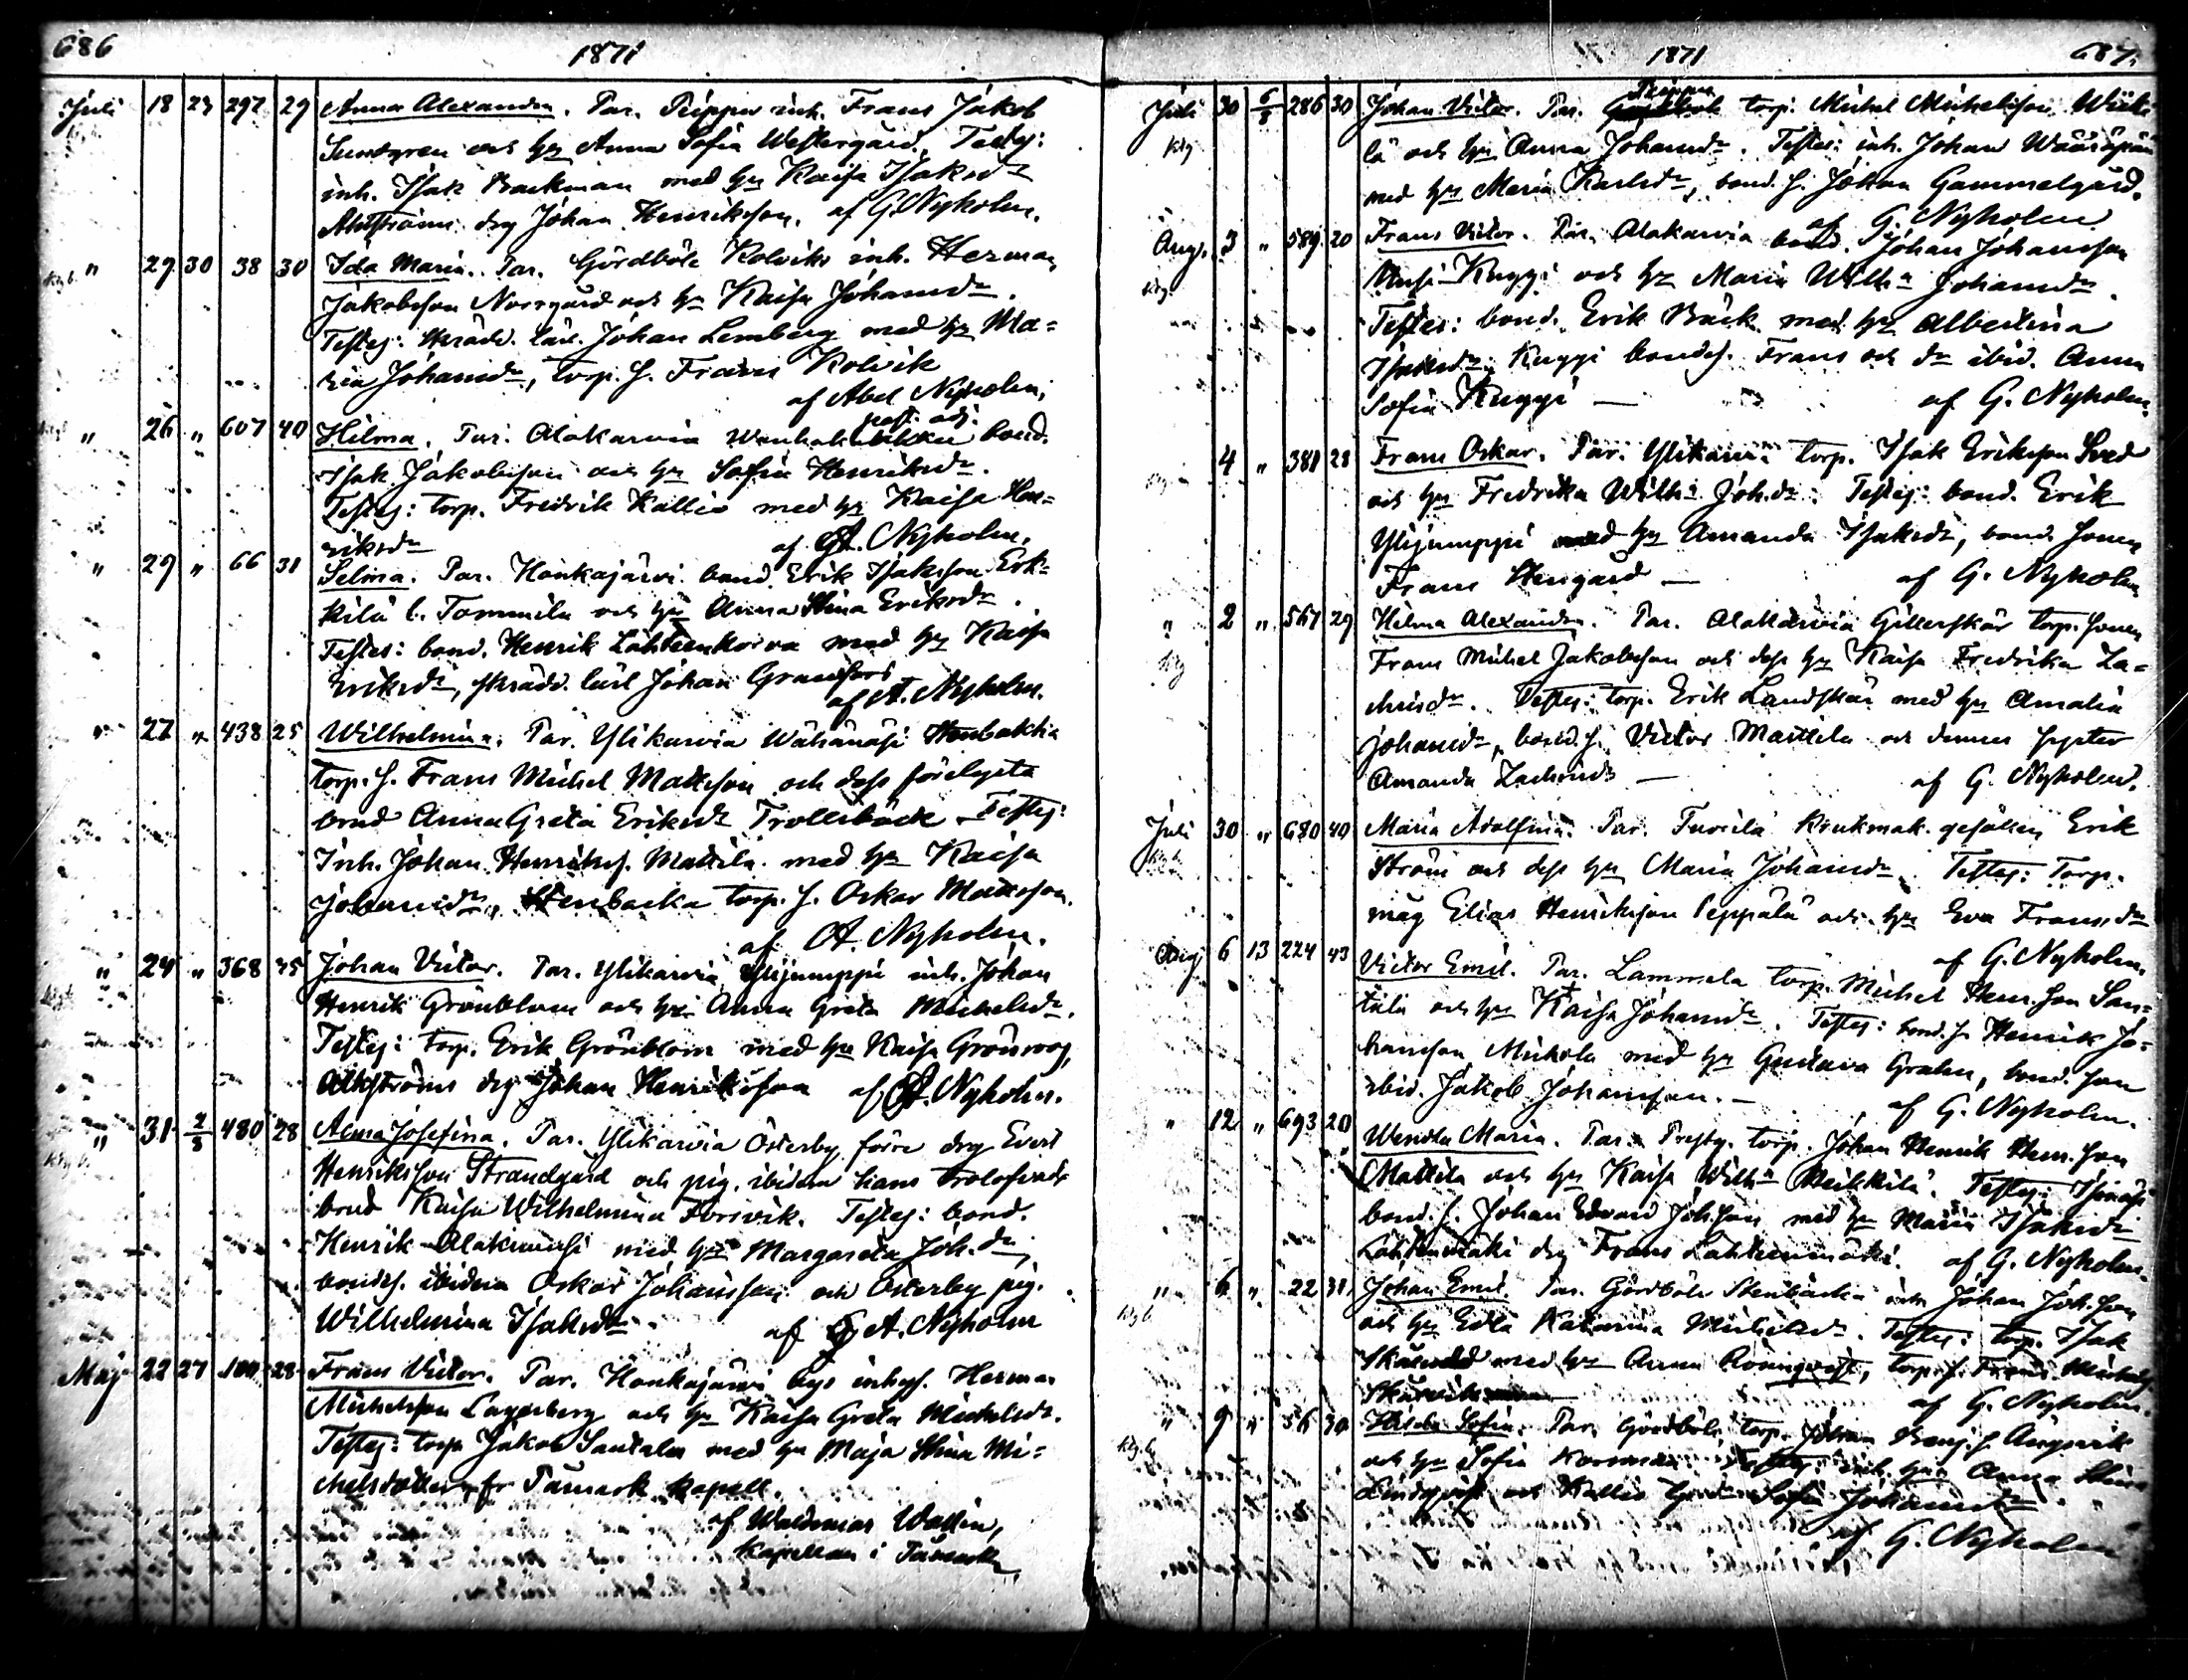 686
1871
Juli 18 23 297 29 Anna Alexandra. Par. Peippu inh. Frans Jakob
Sundgren och hu Anna Sofia Westergård. Testes:
inh. Isak Backman med hu Kaisa Isaksdr
Ahlströms drg Johan Henriksson. af G. Nyholm.
" 29 30 38 30 Ida Maria. Par. Gördböle Rolviks inh. Herman
Jakobsson Norrgård och hu Kaisa Johansdr.
Testes: skrädd. lärl. Johan Lemberg med hu Ma=
ria Johansdr, torp. s. Frans Rolvik
af Abel Nyholm,
past. adj.
" 26 " 607 40 Hilma. Par. Alakarvia bond.
Isak Jakobsson och hu Sofia Henriksdr.
Testes: torp. Fredrik Kallio med hu Kaisa Hen=
riksdr af A. Nyholm.
" 29 " 66 31 Selma. Par. Honkajärvi bond. Erik Isaksson Erk=
kilä l. Tommila och hu Anna Stina Eriksdr.
Testes: bond. Henrik Lähteenkorva med hu Kaisa
riksdr, skrädd. lärl Johan Granfors
af A. Nyholm.
" 27 " 438 25 Wilhelmina. Par. Ylikarvia Wähänäsi Stenbacka
torp. s. Frans Michel Mattsson och dess förelysta
brud Anna Greta Eriksdr Trollsbäck. Testes:
Inh. Johan Henrikss. Mattila med hu Kaisa
Johansdr, Stenbacka torp. s. Oskar Mattsson.
af A. Nyholm.
" 24 " 368 35 Johan Victor. Par. Ylikarvia Ylijumppi inh. Johan
Henrik Grönblom och hu Anna Greta Michelsdr.
Testes: torp. Erik Grönblom med hu Kaisa Grönroos,
Ahlströms drg Johan Henriksson af A. Nyholm.
" 31 2/8 480 28 Alma Josefina. Par. Ylikarvia Österby förre drg Evert
Henriksson Strandgård och pig. ibidem hans trolofvade
brud Kaisa Wilhelmina Forsvik. Testes: bond.
Henrik med hu Margareta Joh.dr,
bondes. ibidem Oskar Johansson och Österby pig.
Wilhelmina Isaksdr af A. Nyholm
Maj 22 27 100 28 Frans Victor. Par. Honkajärvi bys inhys. Herman
Michelsson Lagerberg och hu Kaisa Greta Michelsdr.
Testes: torp. Jakob Santala med hu Maja Stina Mi=
chelsdotter, fr Påmark kapell.
af Waldemar Wallin,
Kapellan i Påmark.
1871
687.
Juli 30 6/8 286 30 Johan Victor. Par. Peippu torp. Michel Michelsson Wiik
lä och hu Anna Johansdr. Testes: inh. Johan
med hu Maria Karlsdr, bond. s. Johan Gammelgård.
af G. Nyholm
Aug. 3 " 589 20 Frans Victor. Par. Alakarvia bond. Johan Johansson
Kuggi och hu Maria Wilh:a Johansdr.
Testes: bond. Erik Bäck med hu Albertina
Isaksdr, Kuggi bondes. Frans och dr ibid. Anna
Sofia Kuggi — af G. Nyholm
4 " 381 28 Frans Oskar. Par. Ylikarvia torp. Isak Eriksson Sved
och hu Fredrika Wilh:a Joh.dr. Testes: bond. Erik
Ylijumppi med hu Amanda Isaksdr, bond. sonen
Frans — af G. Nyholm
" 2 " 567 29 Hilma Alexandra. Par. Alakarvia Gillerskär torp. sonen
Frans Michel Jakobsson och dess hu Kaisa Fredrika Za=
chrisdr. Testes: torp. Erik Landskär med hu Amalia
Johansdr, bond. s. Victor Mattila och dennes syster
Amanda Zachrisdr — af G. Nyholm.
Juli 30 " 680 40 Maria Adolfina. Par. Tuorila Krukmak. gesällen Erik
Ström och dess hu Maria Johansdr. Testes: Torp.
måg Elias Henriksson Seppälä och hu Eva Fransdr
af G. Nyholm.
Aug 6 13 224 43 Victor Emil. Par. Lammela torp. Michel Henr.son San=
tala och hu Kaisa Johansdr. Testes: bond. s. Henrik Jo=
hansson Michola med hu Gustava Grahn, bond. son
ibid. Jakob Johansson. — af G. Nyholm.
" 12 " 693 20 Wendla Maria. Par. Prestg. torp. Johan Henrik Henr.son
Mattila och hu Kaisa Wilh:a Heikkilä. Testes:
bond. s. Johan Edvard Joh.son med hu Maria Isaksdr
Lähteenmäki drg Frans Lähteenmäki. af G. Nyholm.
" 6 " 22 31 Johan Emil. Par. Gördböle Stenbacka inh Johan Joh.son
och hu Edla Katarina Michelsdr. Testes: torp. Isak
med hu Anna Rönnqvist, torp. s. Frans Michels
af G. Nyholm.
" 9 " 56 30 Hilda Sofia. Par. Gördböle torp. Johan Benj. s. Ängsvik
och hu Sofia Testes: inh. hu Anna Stina
Lindqvist och Kallio Sofia Johansdr.
af G. Nyholm